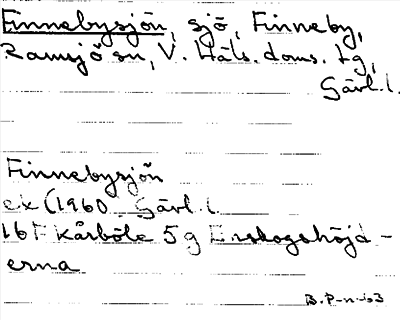 Finnebysjön, sjö, Finneby,
Ramsjö sn, V. Häls. doms. tg,
Gävl. l.
Finnebysjön
ek (1960 Gävl. l.
16F Kårböle 5g Enskogshöjd-
erna
B. P-n -63